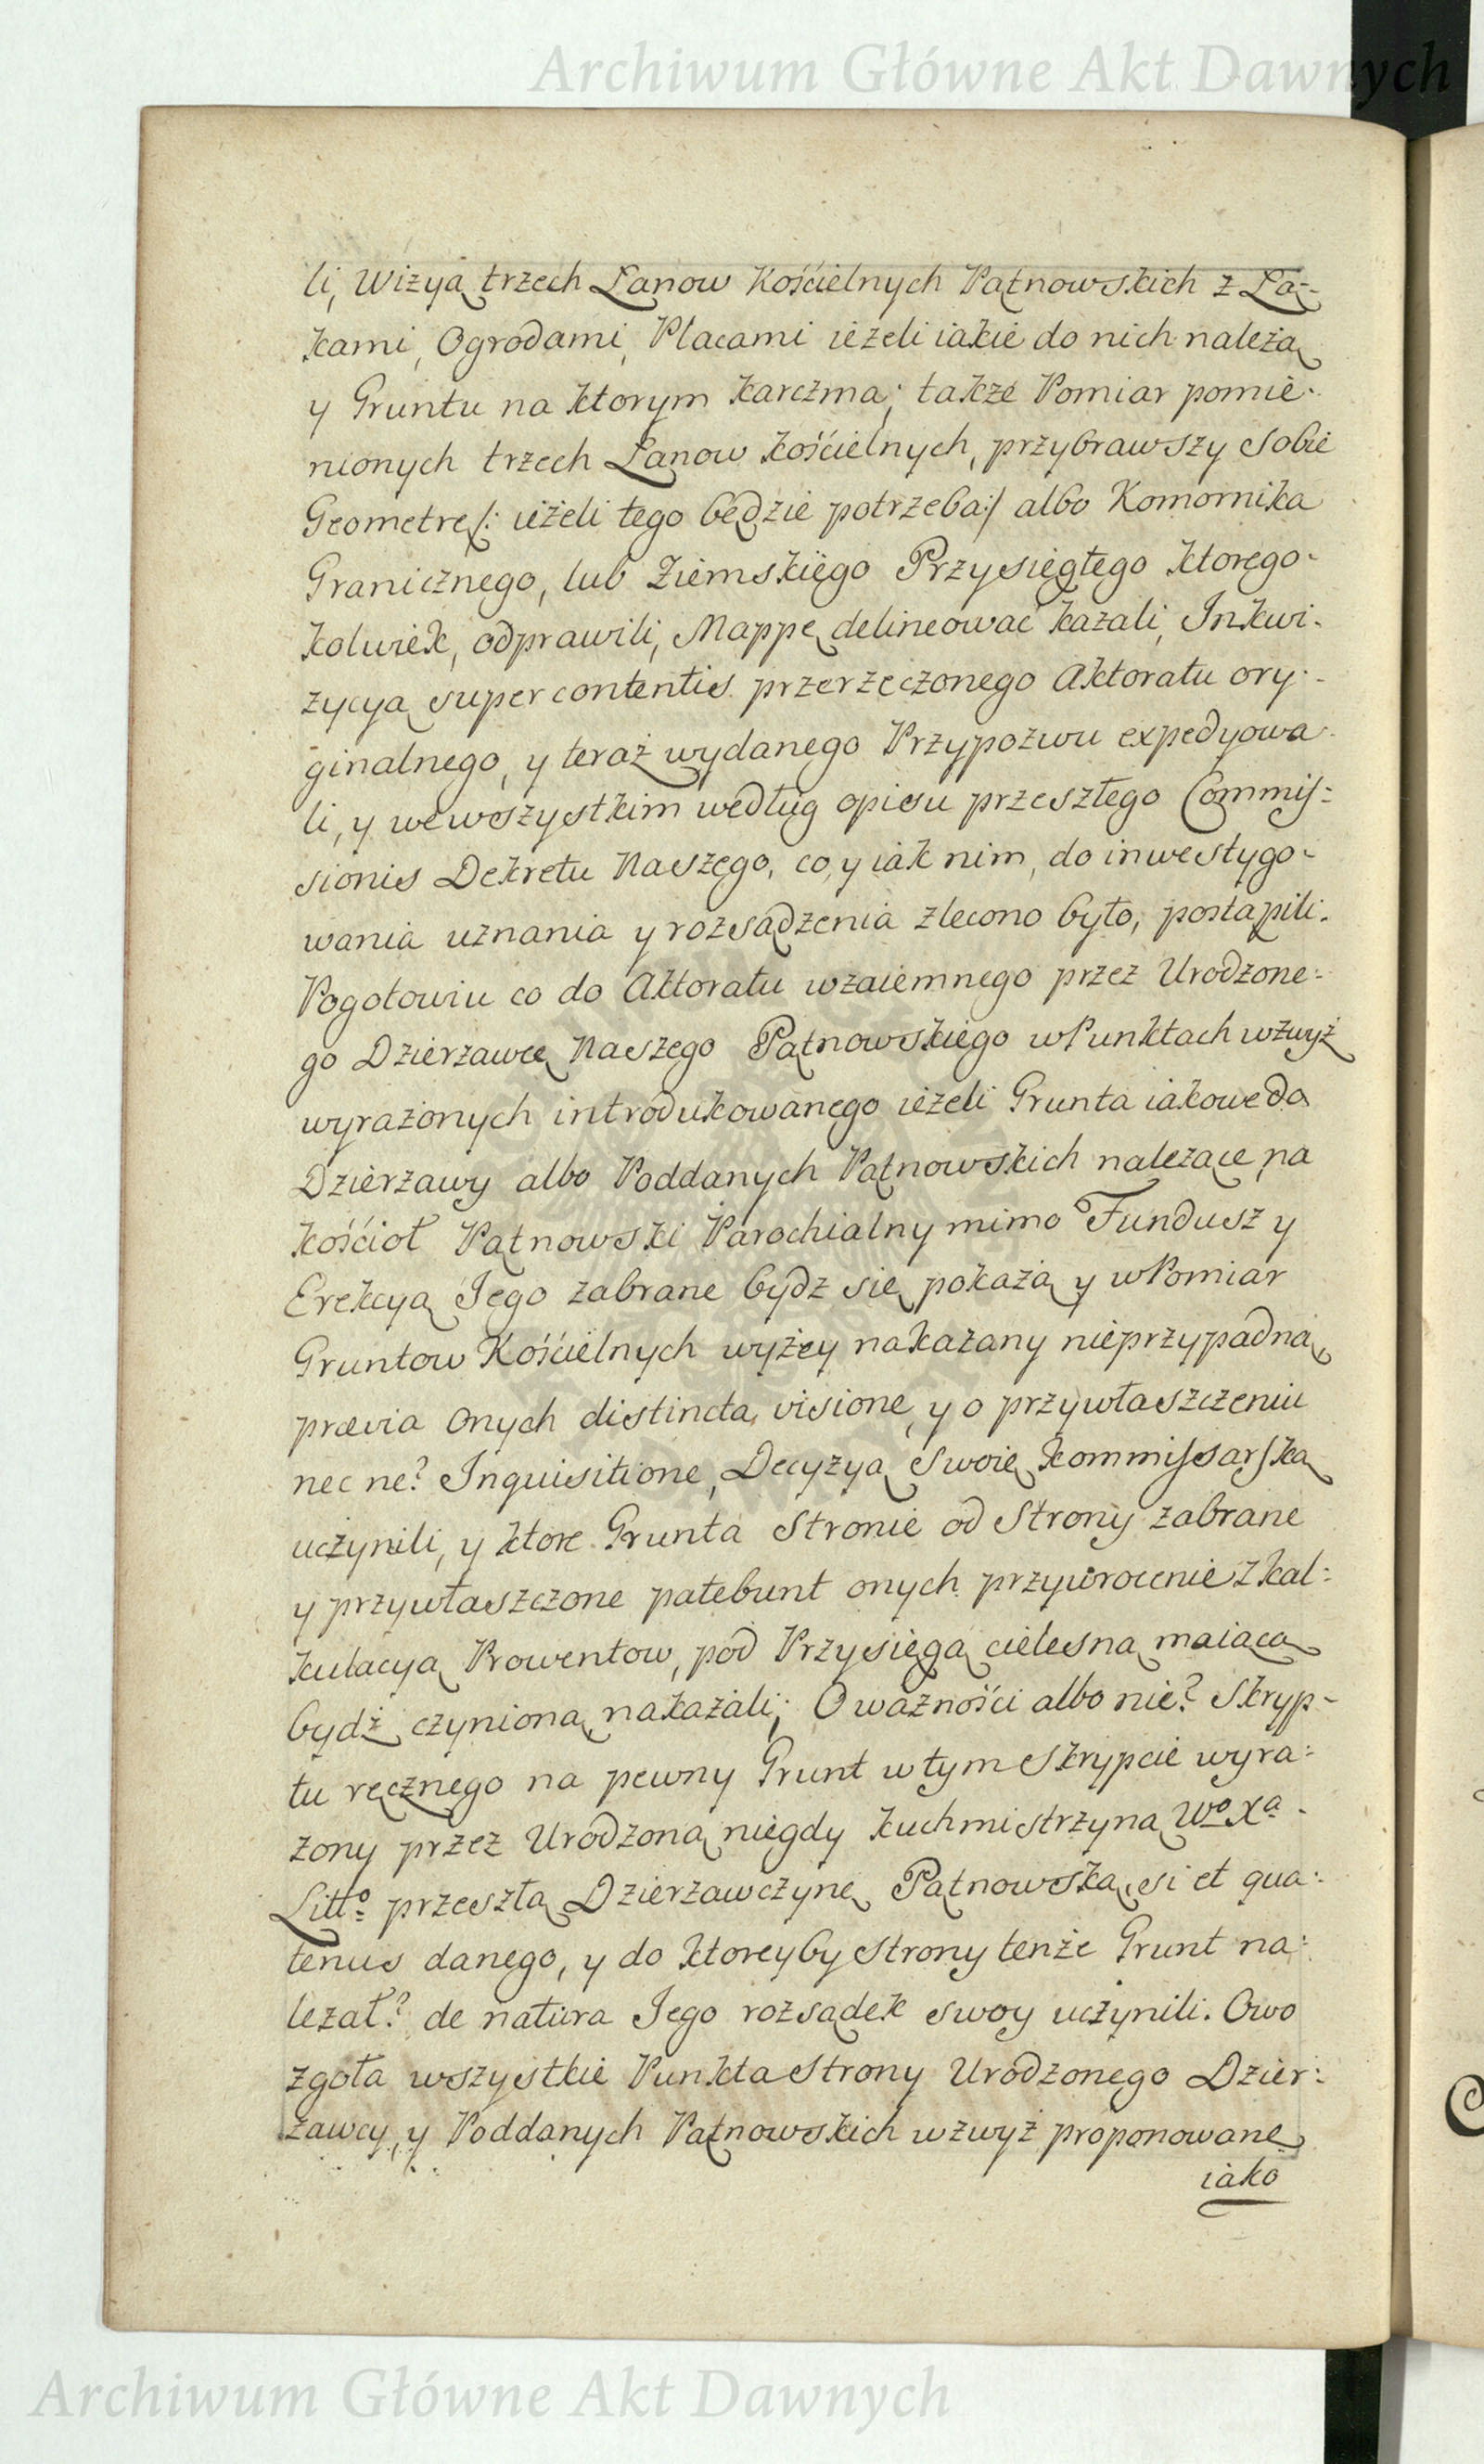 Archiwum Główne Akt Dawnych
li, Wizyą trzech Łanow Kościelnych Pątnowskich z Łą-
kami, Ogrodami, Placami ieżeli iakie do nich należą
y Gruntu na ktorym karczma; także Pomiar pomie-
nionych trzech Łanow kościelnych, przybrawszy sobie
Geometrę /: ieżeli tego będzie potrzeba :/ albo Komornika
Granicznego, lub Ziemskiego Przysięgłego ktorego-
kolwiek, odprawili, Mappę delineować kazali, Inkwi-
zycyą super contentis przerzeczonego Aktoratu ory-
ginalnego, y teraz wydanego Przypozwu expedyowa-
li, y we wszystkim według opisu przeszłego Commis=
sionis Dekretu Naszego, co, y iak nim, do inwestygo-
wania uznania y rozsądzenia zlecono było, postąpili.
Pogotowiu co do Aktoratu wzaiemnego przez Urodzone=
go Dzierzawcę Naszego Pątnowskiego w Punktach wzwyż
wyrażonych introdukowanego ieżeli Grunta iakowe do
Dzierżawy albo Poddanych Pątnowskich należące, na
kościoł Pątnowski Parochialny mimo Fundusz y
Erekcyą Jego zabrane bydz się pokażą y w Pomiar
Gruntow Kościelnych wyżey nakazany nieprzypadną,
prævia onych distincta, visione, y o przywłaszczeniu
nec ne? Inquisitione, Decyzyą swoię kommissarską
uczynili, y ktore Grunta Stronie od Strony zabrane
y przywłaszczone patebunt onych przywrocenie z kal=
kulacyą Prowentow, pod Przysięgą cielesną maiącą
bydź czynioną nakazali; O ważności albo nie? Skryp-
tu ręcznego na pewny Grunt w tym Skrypcie wyra=
zony przez Urodzoną niegdy kuchmistrzynę Wo Xa
Litto przeszłą Dzierzawczynę Pątnowską, si et qua=
tenus danego, y do ktoreyby strony tenże Grunt na=
lezał? de natura Jego rozsądek swoy uczynili. Owo
zgoła wszystkie Punkta Strony Urodzonego Dzier=
żawcy, y Poddanych Pątnowskich wzwyż proponowane
iako
Archiwum Główne Akt Dawnych